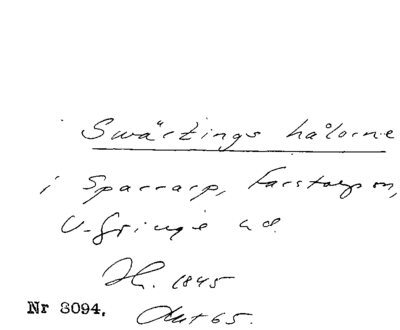 i Swärtings hålorne
i Sparrarp, Farstorps sn,
V. Göinge hd.
Jh. 1845
Nr 3094. Akt 65.